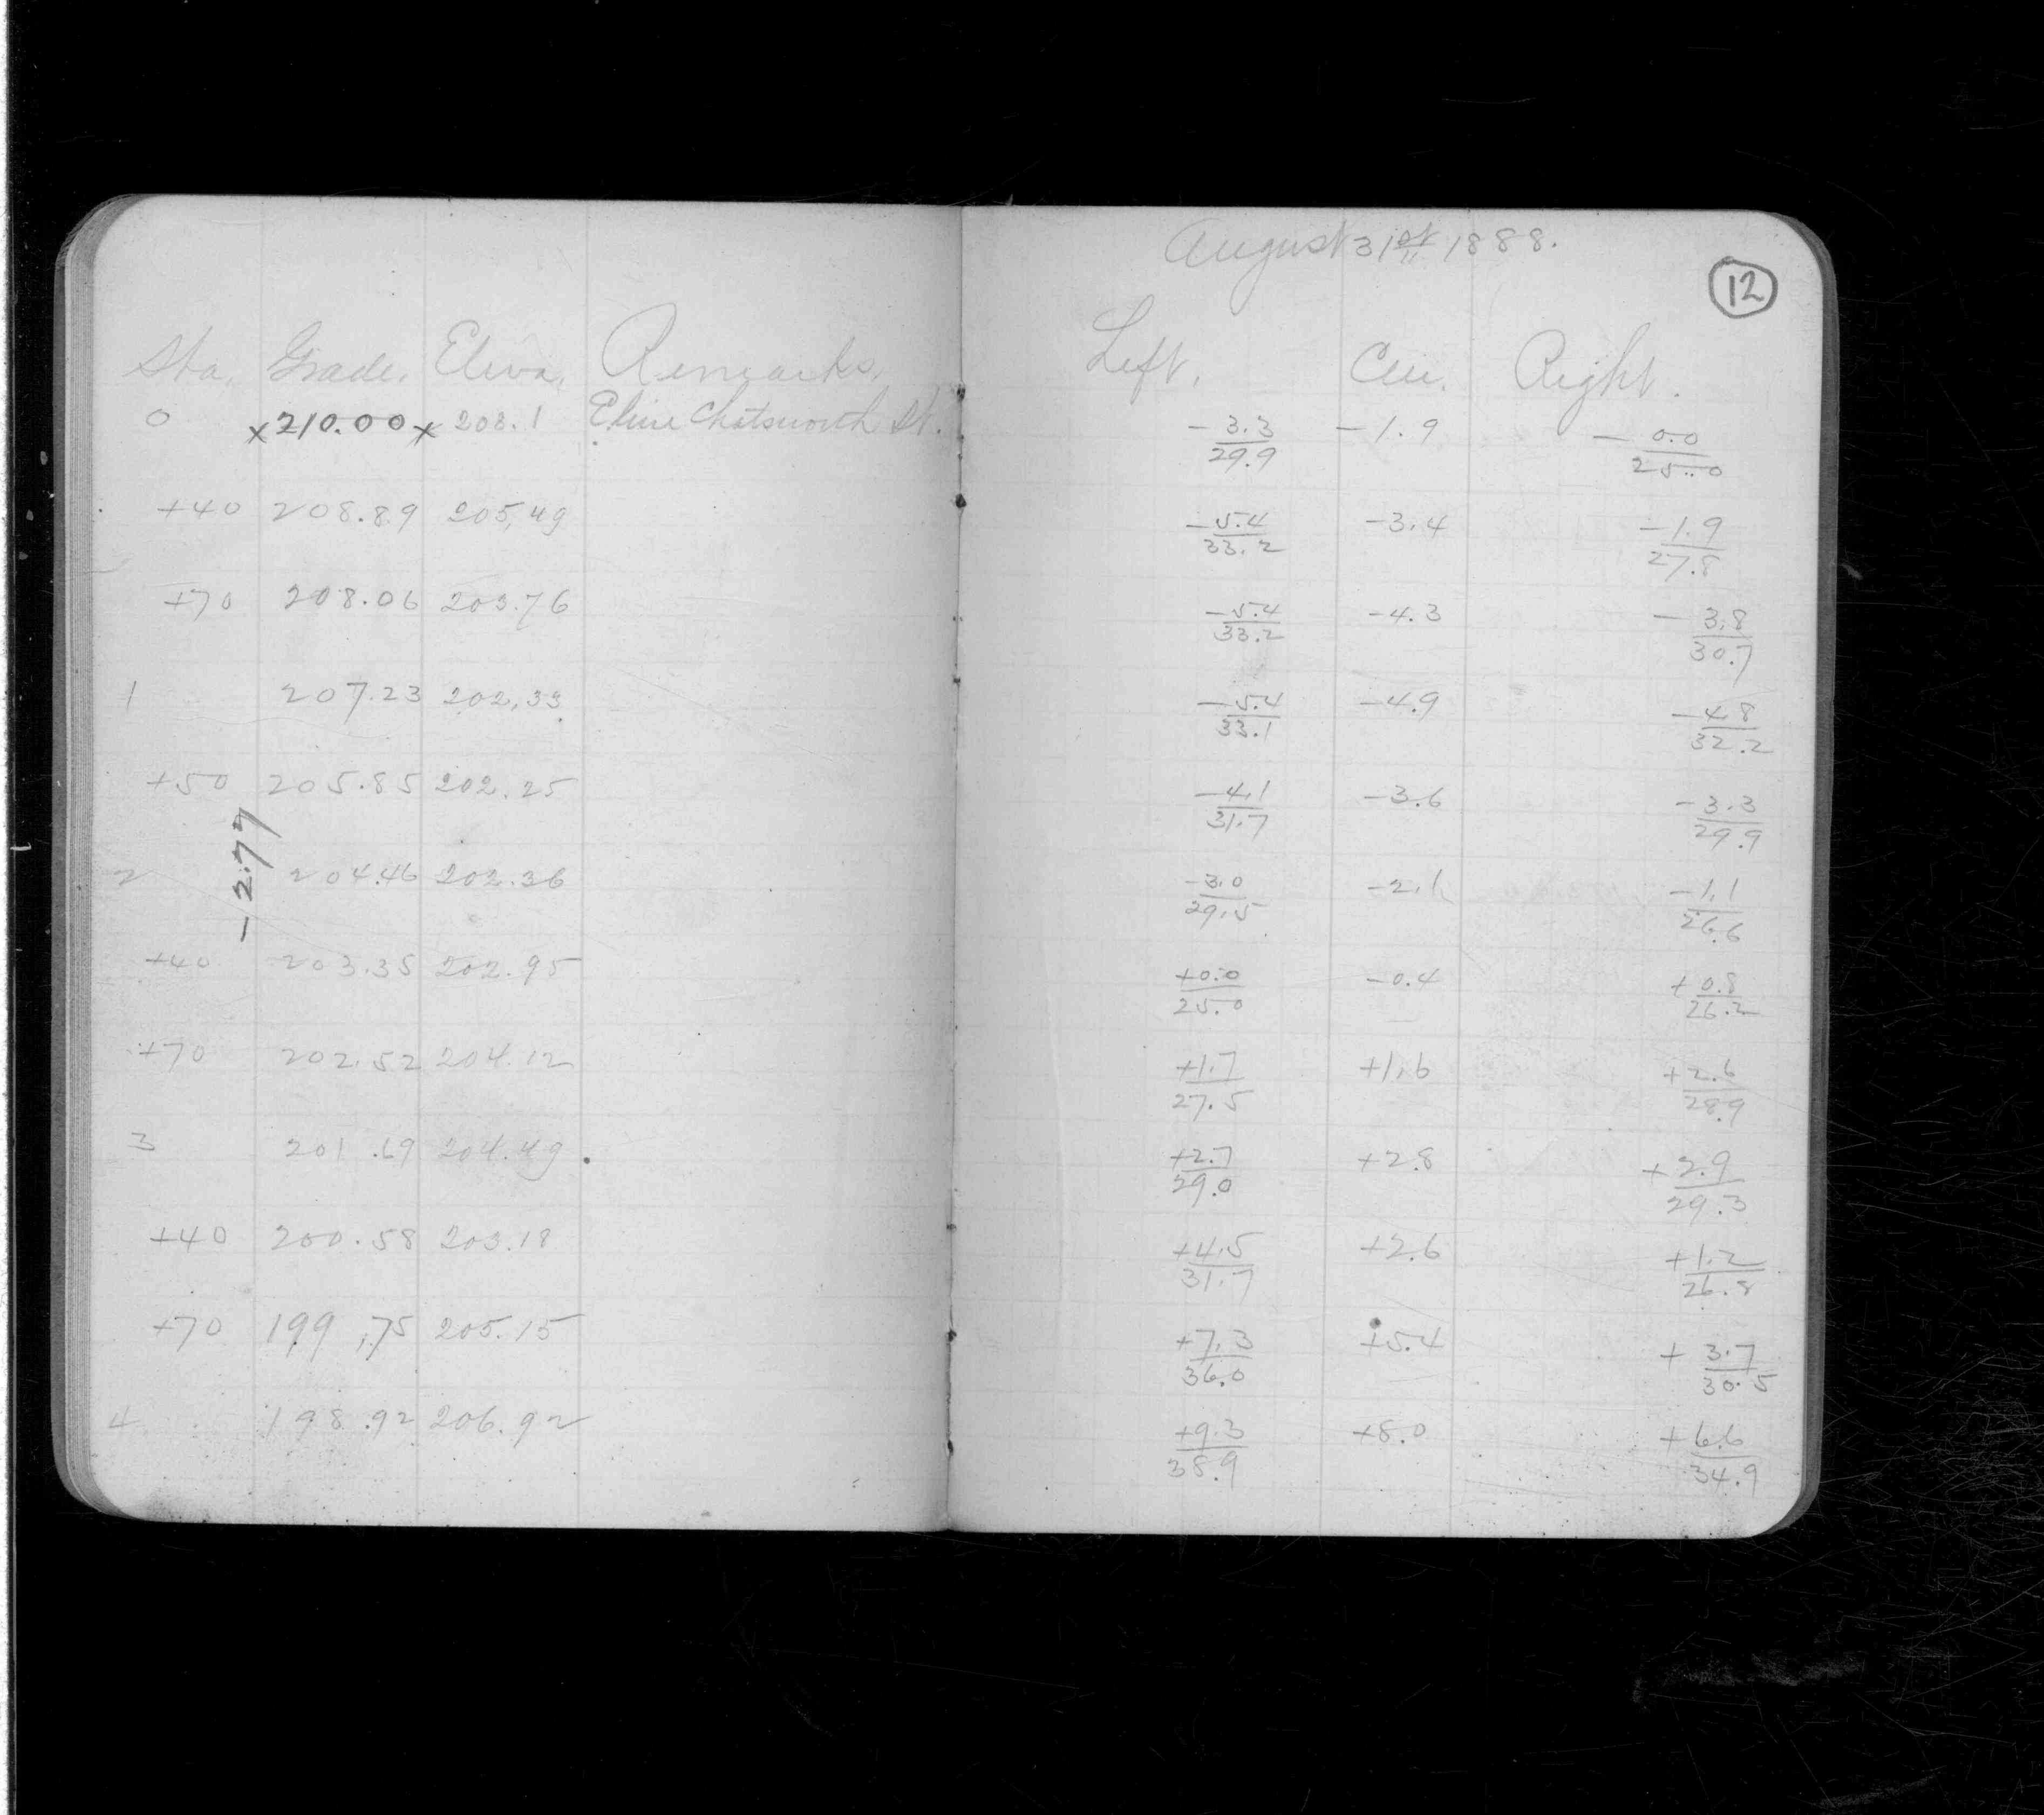 August 31st 1888.
12
Sta. Grade. Eleva. Remarks. Left. Cen. Right.
0 x210.00x 208.1 E line Chatsworth St. -3.3/29.9 -1.9 -0.0/25.0
+40 208.89 205.49 -5.4/33.2 -3.4 -1.9/27.8
+70 208.06 203.76 -5.4/33.2 -4.3 -3.8/30.7
1 207.23 202.33 -5.4/33.1 -4.9 -4.8/32.2
+50 205.85 202.25 -4.1/31.7 -3.6 -3.3/29.9
-2.77
2 204.46 202.36 -3.0/29.5 -2.1 -1.1/26.6
+40 203.35 202.95 +0.0/25.0 -0.4 +0.8/26.2
+70 202.52 204.12 +1.7/27.5 +1.6 +2.6/28.9
3 201.69 204.49 +2.7/29.0 +2.8 +2.9/29.3
+40 200.58 203.18 +4.5/31.7 +2.6 +1.2/26.8
+70 199.75 205.15 +7.3/36.0 +5.4 +3.7/30.5
4 198.92 206.92 +9.3/38.9 +8.0 +6.6/34.9